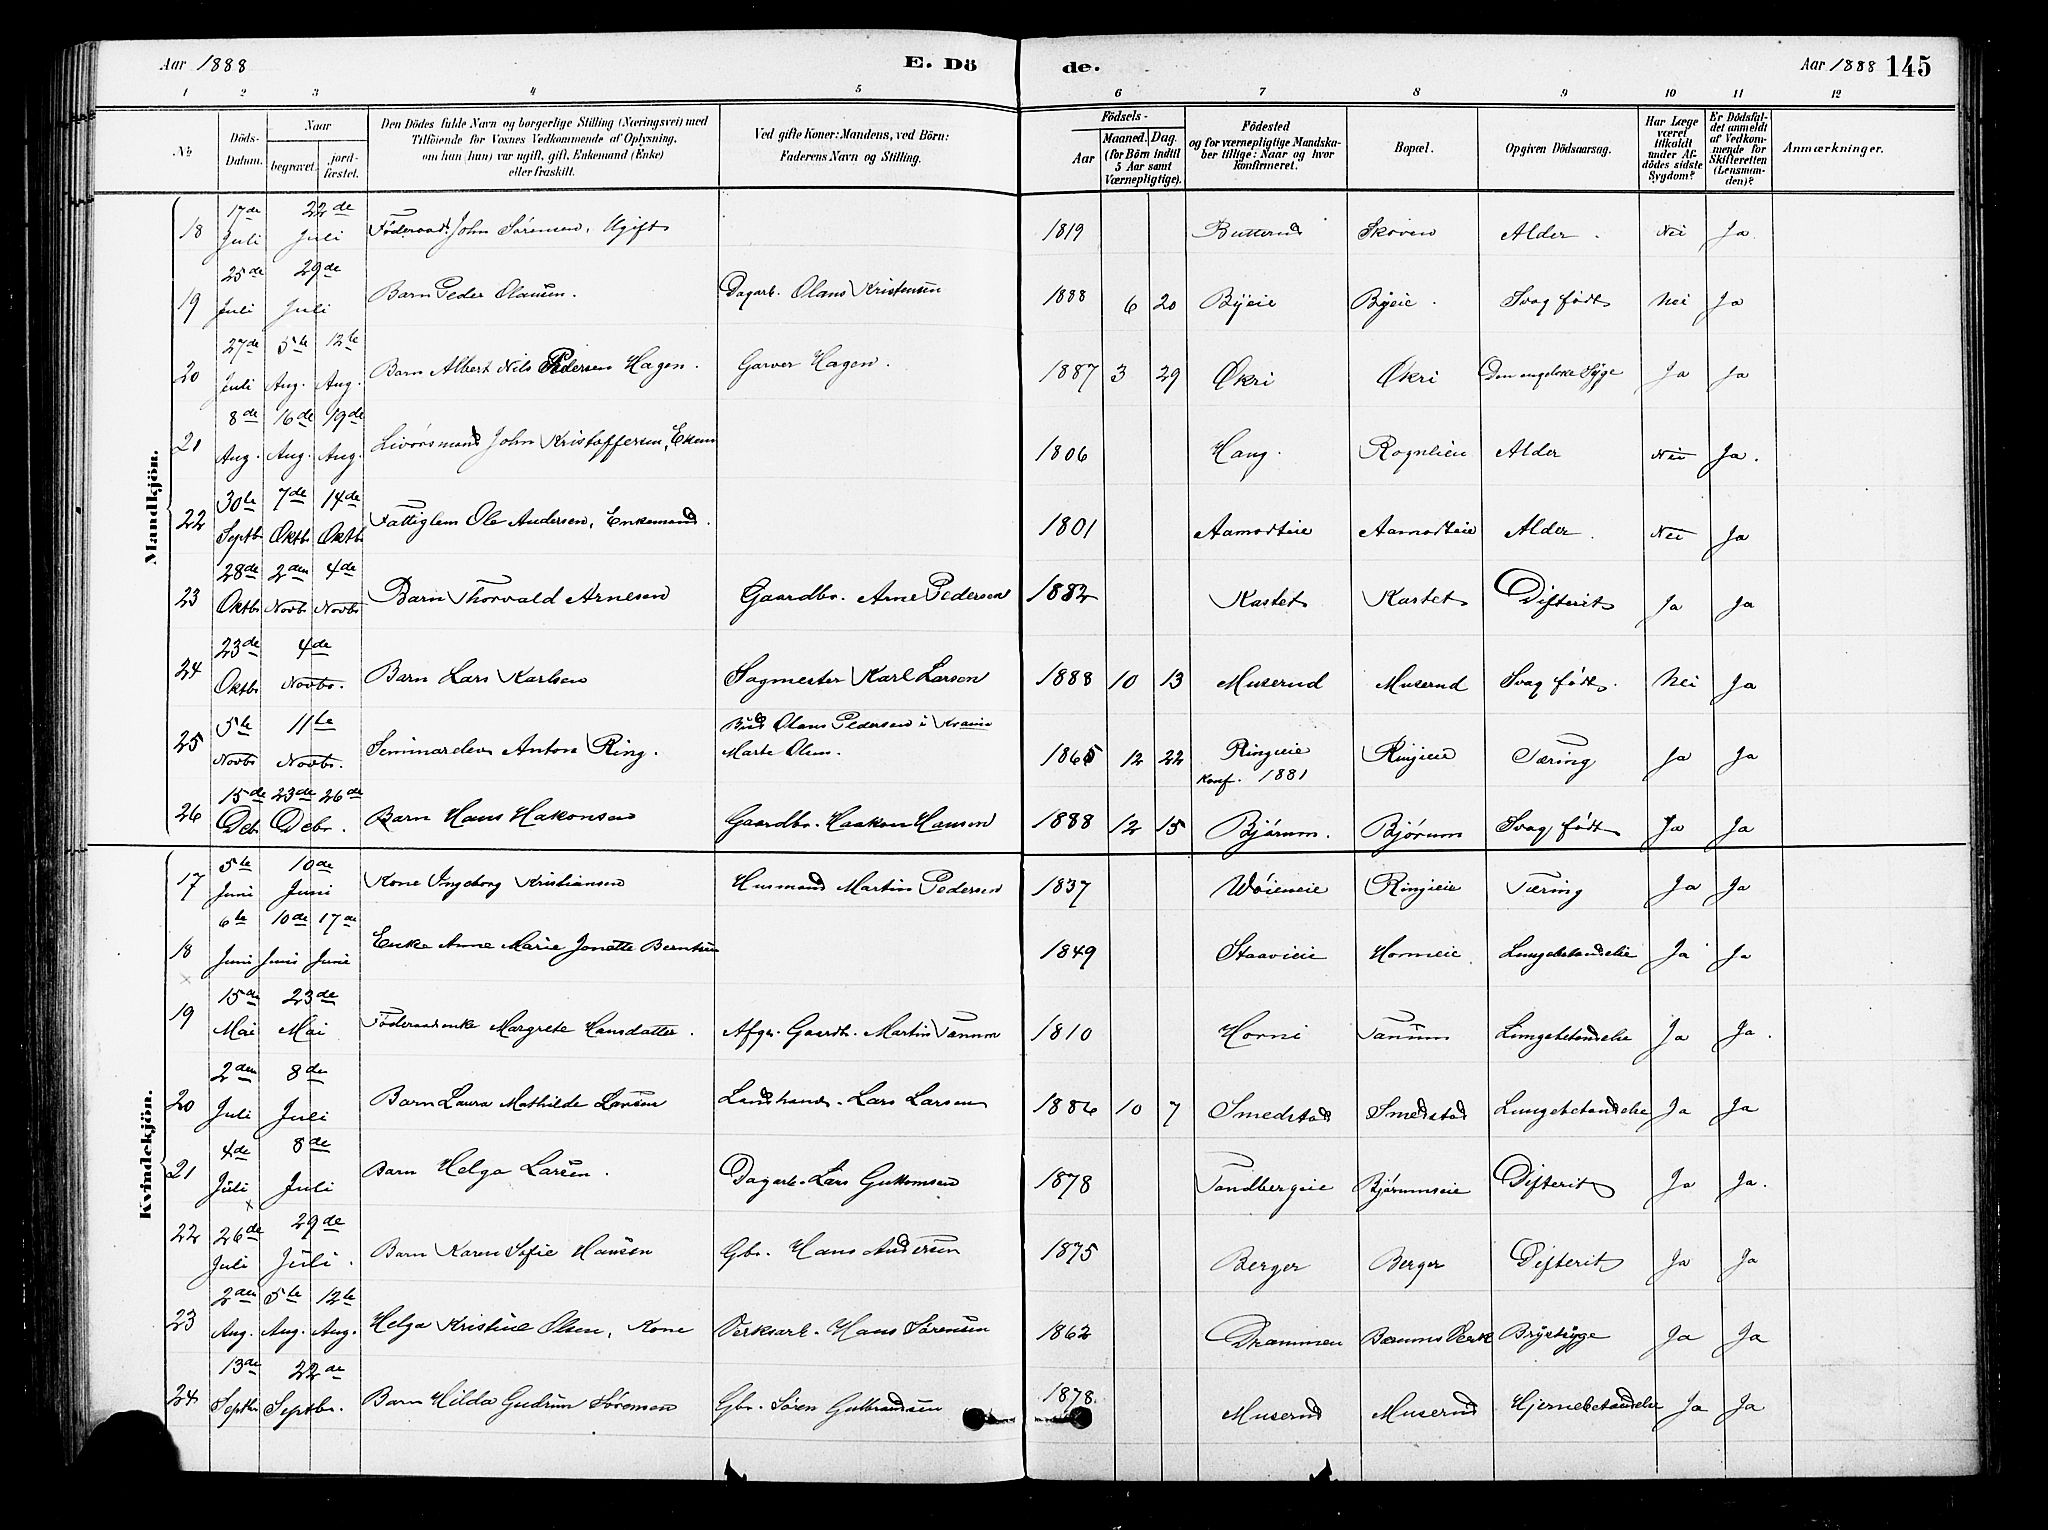 Aar 1888 E. Dö de. Aar 1888 145
1 2 3 4 5 6 7 8 9 10 11 12
No Döds-Datum. Naar begravet. jordfæstet. Den Dödes fulde Navn og borgerlige Stilling (Næringsvei) med Tilföiende for Voxnes Vedkommende af Oplysning, om han (hun) var ugift, gift, Enkemand (Enke) eller fraskilt. Ved gifte Koner: Mandens, ved Börn: Faderens Navn og Stilling. Födsels- Aar Maaned. Dag. (for Börn indtil 5 Aar samt Værnepligtige). Födested og for værnepligtige Mandskaber tillige: Naar og hvor konfirmeret. Bopæl. Opgiven Dödsaarsag. Har Læge været tilkaldt under Afdödes sidste Sygdom? Er Dödsfaldet anmeldt af Vedkommende for Skifteretten (Lensmanden)? Anmærkninger.
Mandkjön.
18 17de Juli 22de Juli Föderaad. John Sørensen, Ugift 1819 Butterud Skoven Alder. Nei Ja
19 25de Juli 29de Juli Barn Peder Olausen. Dagarb. Olaus Kristensen 1888 6 20 Byeie Byeie. Svag født Nei Ja
20 27de Juli 5te Aug. 12te Aug. Barn Albert Nils Pedersen Hagen. Garver Hagen. 1887 3 29 Økri Økri Den engelske Syge Ja Ja
21 8de Aug. 16de Aug. 19de Aug. Livørsmand John Kristoffersen, Ekem 1806 Haug. Rognlien Alder Nei Ja.
22 30te Septbr 7de Oktbr 14de Oktbr Fattiglem Ole Andersen, Enkemand. 1801 Aamodteie Aamodteie Alder. Nei Ja
23 28de Oktbr 2den Novbr 4de Novbr Barn Thorvald Arnesen Gaardbr. Arne Pedersen 1882 Kastet Kastet Difterit Ja Ja
24 23de Oktbr 4de Novbr. Barn Lars Karlsen Sagmester Karl Larsen 1888 10 13 Muserud Muserud Svag født. Nei Ja
25 5te Novbr 11te Novbr. Seminarelev Anton Ring. Olaus Pedersen i
Marte Olsen. 1865 12 22 Ringieie Konf. 1881 Ringieie Tæring Ja Ja
26 15de Debr 23de 26de Debr. Barn Hans Hakonsen Gaardbr. Haakon Hansen 1888 12 15 Bjørum. Bjørum Svag født Ja Ja
Kvindekjön.
17 5te Juni 10de Juni Kone Ingeborg Kristiansen Husmand Martin Pedersen 1837 Wøieneie Ringieie Tæring Ja Ja
18 6te Juni 10de Juni 17de Juni Enke Anne Marie Jonette Berntsen 1849 Staavieie Horneie Lungebetændelse Ja Ja
19 15de Mai 23de Mai Föderaadsenke Margrete Hansdatter. Afgr. Gaardb. Martin Tanum 1810 Horni Tanum Lungebetændelse Ja Ja.
20 2den Juli 8de Juli Barn Laura Mathilde Larsen Landhand. Lars Larsen 1886 10 7 Smedstad Smedstad Lungebetændelse Ja Ja
21 4de Juli 8de Juli Barn Helga Larsen. Dagarb. Lars Guttormsen 1878 Tandbergeie Bjørumseie Difterit Ja Ja.
22 26de Juli 29de Juli. Barn Karen Sofie Hansen Gbr. Hans Andersen 1875 Berger Berger Difterit Ja Ja
23 2den Aug. 5te Aug. 12te Aug. Helga Kristine Olsen, Kone Verksarb. Hans Sørensen 1862 Drammen Bærums Verk Brystsyge Ja Ja
24 13de Septbr 22de Septbr. Barn Hilda Gudrun Sørensen Gbr. Søren Gulbrandsen 1878. Muserud Muserud Hjernebetændelse Ja Ja